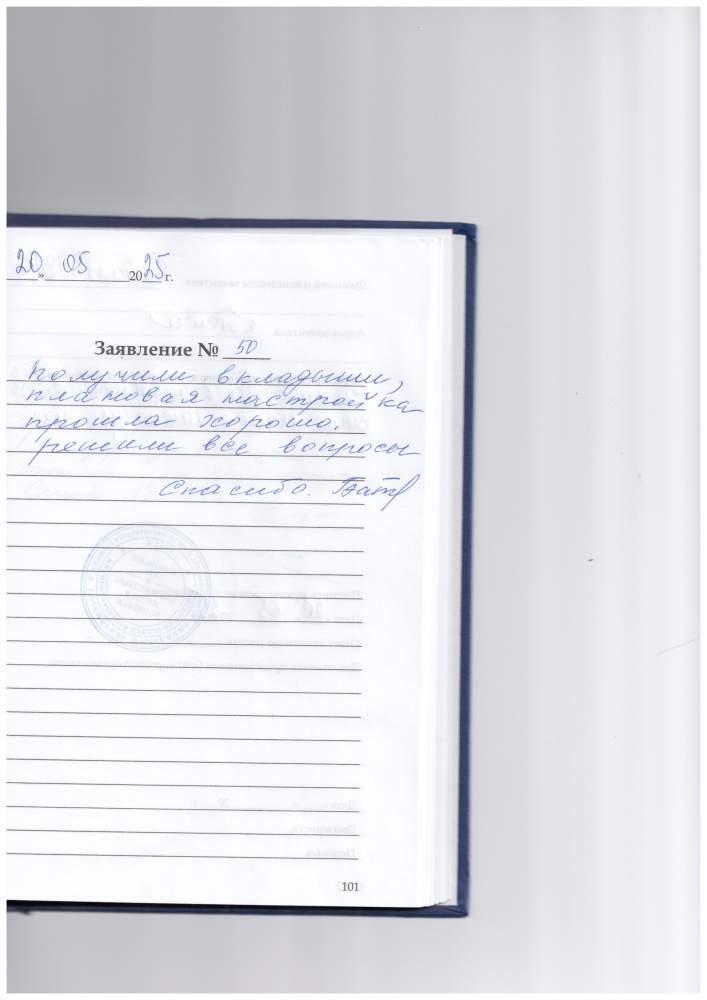 20» 05 2025 г.
Заявление № 50
Получили вкладыши,
плановая настройка
прошла хорошо.
решили все вопросы
Спасибо.
101